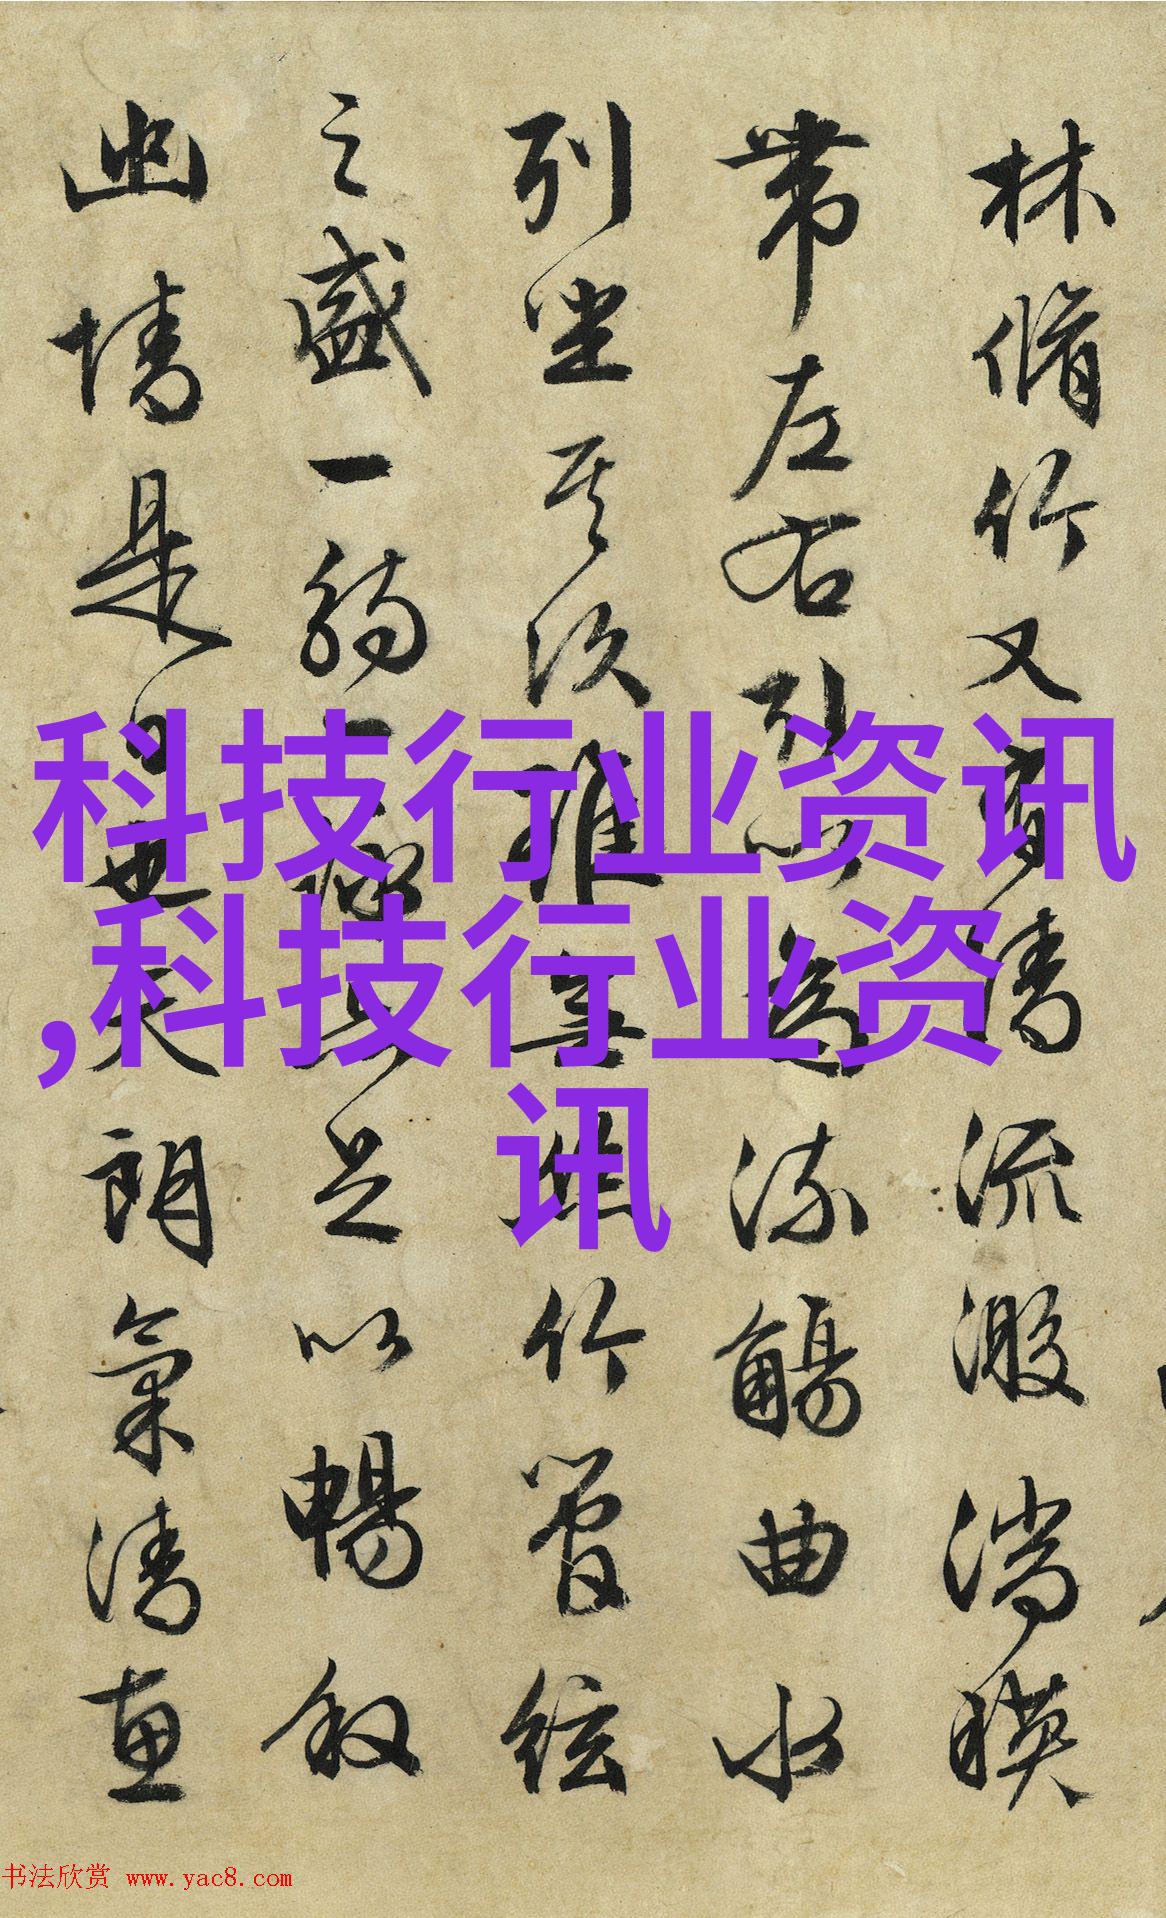 林脩竹又有清流激湍暎
帶左右引以為流觴曲水
列坐其次雖無絲竹管絃
之盛一觴一詠亦足以暢叙
幽情是日也天朗氣清惠
科技行业资讯
,科技行业资
讯
书法欣赏 www.yac8.com